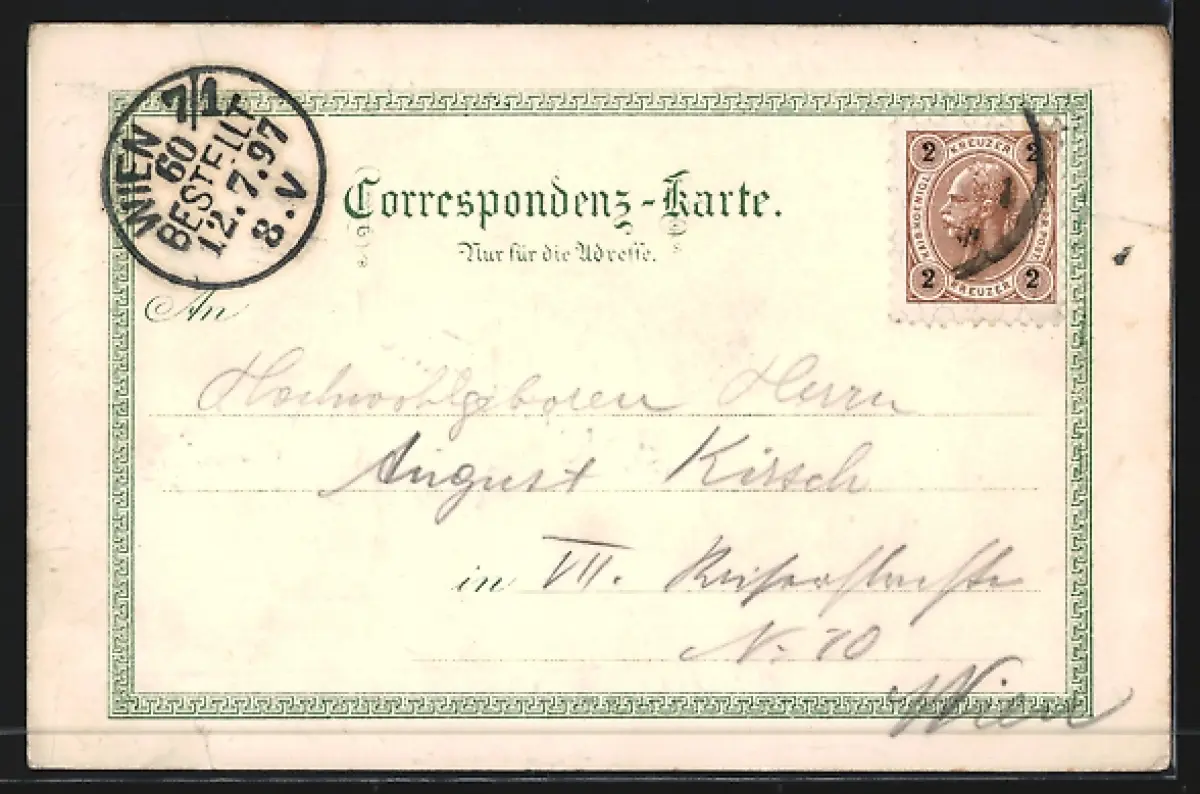 WIEN 7/1
60
BESTELLT
12.7.97
8.V
2 KREUZER 2
KAIS.KOENIGL.
2 KREUZER 2
Correspondenz-Karte.
Nur für die Adresse.
An
Hochwohlgeboren Herrn
August Kirsch
in VII. Kaiserstrasse
N. 70
Wien